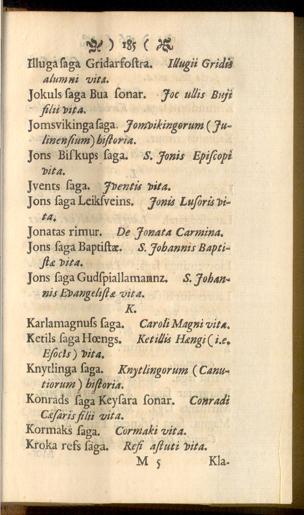 ) 185 (
Illuga saga Gridarfostra. Illugii Gridis
alumni vita.
Jokuls saga Bua sonar. Joc ullis Busi
filii vita.
Jomsvikinga saga. Jomvikingorum (Ju-
linensium) historia.
Jons Biſkups ſaga. S. Jonis Epiſcopi
vita.
Jvents ſaga. Jventis vita.
Jons ſaga Leikſveins. Jonis Luſoris vi-
ta.
Jonatas rimur. De Jonata Carmina.
Jons ſaga Baptiſtæ. S. Johannis Bapti-
ſtæ vita.
Jons ſaga Gudſpiallamannz. S. Johan-
nis Evangeliſtæ vita.
K.
Karlamagnuſs ſaga. Caroli Magni vita.
Ketils ſaga Hœngs. Ketilli Hængi (i.e.
Eſocis) vita.
Knytlinga ſaga. Knytlingorum (Canu-
tiorum) hiſtoria.
Konrads ſaga Keyſara ſonar. Conradi
Cæſaris filii vita.
Kormaks ſaga. Cormaki vita.
Kroka refs ſaga. Refi aſtuti vita.
M 5 Kla-